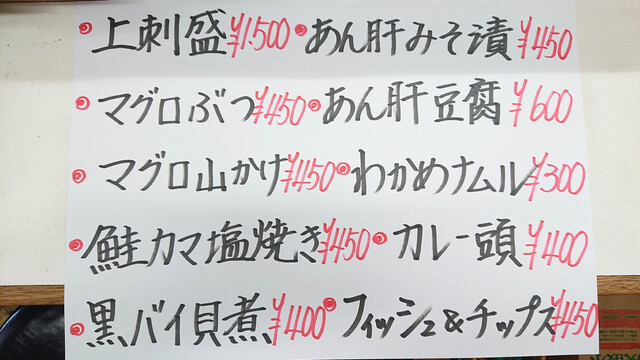 上刺盛¥1.500 あん肝みそ漬¥450
マグロぶつ¥450 あん肝豆腐¥600
マグロ山かけ¥450 わかめナムル¥300
鮭カマ塩焼き¥450 カレー頭¥400
黒バイ貝煮¥400 フィッシュ&チップス¥450